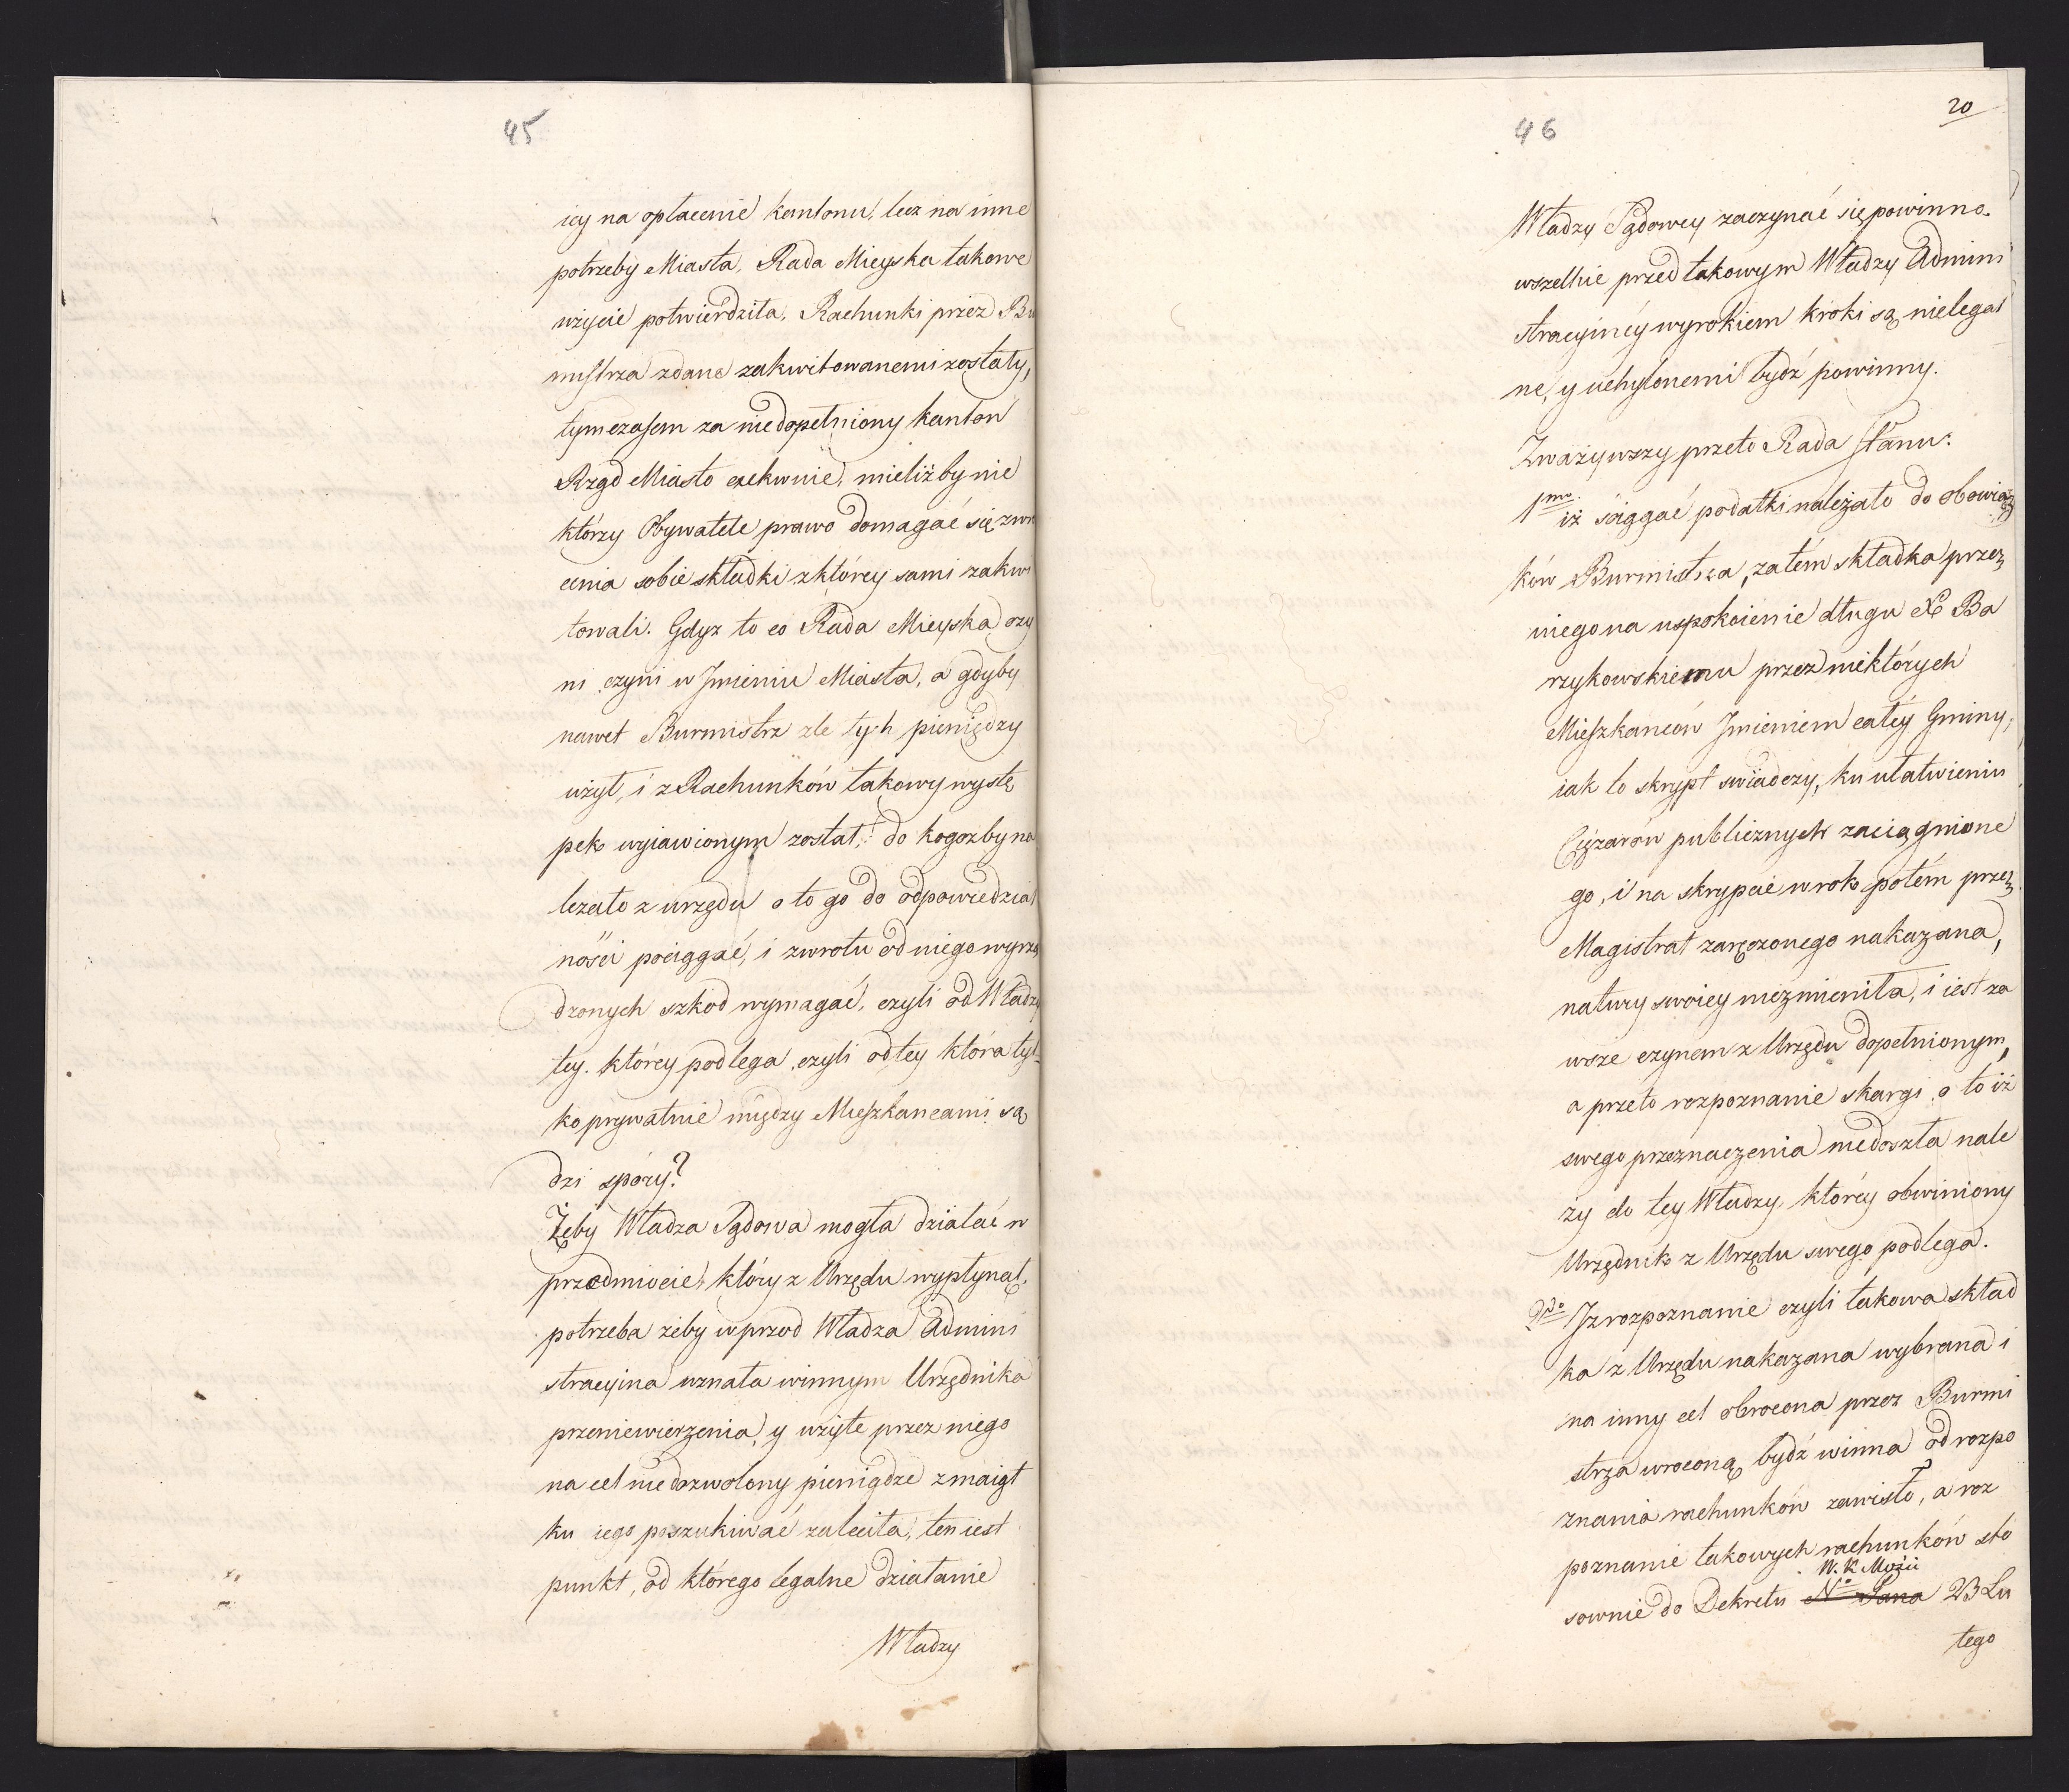 45
icy na opłacenie kantonu, lecz na inne
potrzeby Miasta, Rada Mieyska takowe
użycie potwierdziła, Rachunki przez Bu
mistrza zdane zakwitowanemi zostały,
tymczasem za niedopełniony kanton
Rząd Miasto exekwuie, mieliżby nie
którzy Obywatele prawo domagać się zwró
cenia sobie składki z którey sami zakwi
towali. Gdyz to co Rada Mieyska czy
ni czyni w Jmieniu Miasta, a gdyby
nawet Burmistrz źle tych pieniędzy
użył, i z Rachunków takowy wystę
pek wyiawionym został, do kogożby na
leżało z urzędu o to go do odpowiedzial
ności pociągać, i zwrotu od niego wyrzą
dzonych szkod wymagać, czyli od Władzy
tey. którey podlega, czyli od tey która tyl
ko prywatnie między Mieszkancami są
dzi spory?
Żeby Władza Sądowa mogła działać w
przedmiocie, który z Urzędu wypłynął,
potrzeba żeby wprzod Władza Admini
stracyina uznała winnym Urzędnika
przeniewierzenia, y użyte przez niego
na cel niedozwolony pieniądze z maiąt
ku iego poszukiwać zaleciła, ten iest
punkt, od którego legalne działanie
Władzy
20
46
Władzy Sądowey zaczynać się powinno.
wszelkie przed takowym Władzy Admini
stracyinéy wyrokiem kroki są nielegal
ne, y uchylonemi bydź powinny.
Zważywszy przeto Rada Stanu:
1mo. iż ściągać podatki należało do obowiąz
ków Burmistrza, zatém składka przez
niego na uspokoienie długu X Ba
rzykowskiemu przez niektórych
Mieszkanców Jmieniem całéy Gminy,
iak to skrypt swiadczy, ku ułatwieniu
Ciężarów publicznych zaciągnione
go, i na skrypcie w rok potém przez
Magistrat zaręczonego nakazana,
natury swoiey niezmieniła, i iest za
wsze czynem z Urzędu dopełnionym,
a przeto rozpoznanie skargi o to iż
swego przeznaczenia niedoszła nale
ży do tey Władzy, któréy obwiniony
Urzędnik z Urzędu swego podlega.
2do Jz rozpoznanie czyli takowa skład
ka z Urzędu nakazana wybrana i
na inny cel obrocona przez Burmi
strza wroconą bydź winna od rozpo
znania rachunków zawisło, a roz
poznanie takowych rachunków sto
W. K. Mości
sownie do Dekretu N° Pana 23 Lu
tego